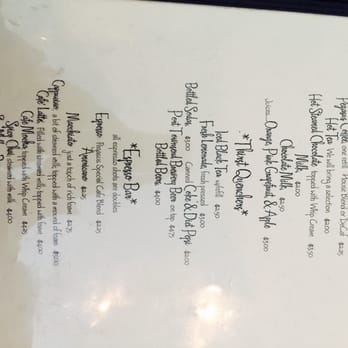 Pegasus Coffee one refill House Blend or DeCaf $2.25
Hot Tea We will bring a selection $2.00
Hot Steamed Chocolate topped with Whip Cream $3.50
Milk $2.00
Chocolate Milk $2.50
Juices... Orange, Pink Grapefruit & Apple $3.00
*Thirst Quenchers*
Iced Black Tea w/refill $2.50
Fresh Lemonade fresh pressed $3.00
Bottled Sodas $3.00 Canned Coke & Diet Pepsi $2.00
Pint Traverspud Banana Beer on tap $4.75
Bottled Beers $4.00
*Espresso Bar*
all espresso shots are doubles
Espresso Pegasus Special Cafe Blend $2.25
Americano $2.25
Macchiato just a touch of rich foam $2.75
Cappuccino a bit of steamed milk, topped with a mound of foam
Cafe Latte filled with steamed milk, topped with foam $4.00
Cafe Mocha topped with Whip Cream $4.25
Spicy Chai steamed with milk $4.00